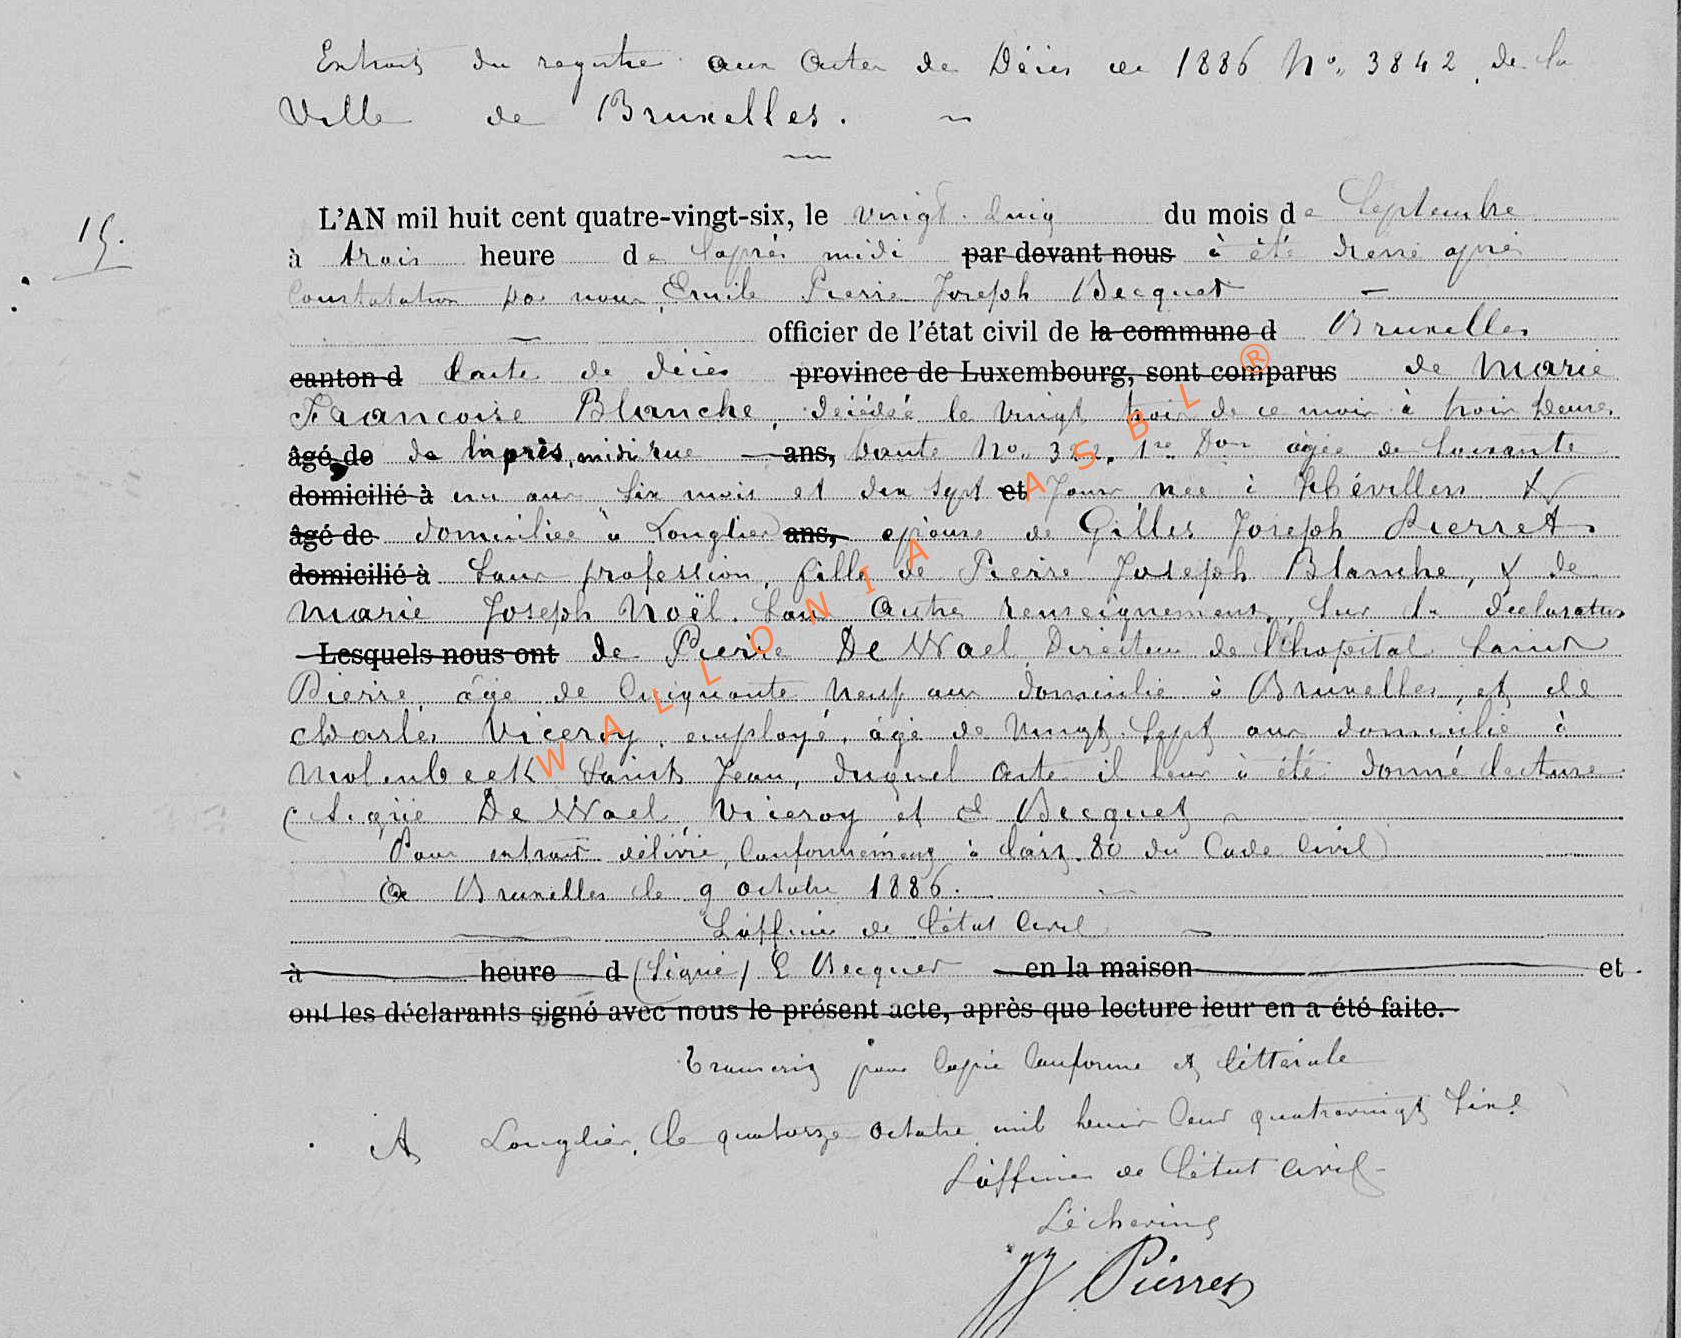 Extrait du registre aux Actes de Décès de 1886 No. 3842, de la
Ville de Bruxelles.
15.
L'AN mil huit cent quatre-vingt-six, le vingt cinq du mois de Septembre
à trois heure de l'après midi par devant nous à été dressé après
Constatation par nous Emile Pierre Joseph Becquet
officier de l'état civil de la commune d Bruxelles
canton d l'acte de décès province de Luxembourg, sont comparus de Marie
Françoise Blanche, décédée le vingt trois de ce mois à trois heures
âgé de de l'après midi rue ans, haute No. 322, 1re Don âgée de soixante
domicilié à un ans six mois et dix sept et jours, née à Thévillers &
âgé de domiciliée à Longlier ans, épouse de Gilles Joseph Pierret
domicilié à sans profession, fille de Pierre Joseph Blanche, & de
Marie Joseph Noël. Sans autre renseignement, sur la déclaration
Lesquels nous ont de Pierre De Wael Directeur de l'hopital Saint
Pierre, âgé de Cinquante neuf ans domicilié à Bruxelles, et de
Charles Viceroy, employé, âgé de vingt sept ans domicilié à
Molenbeek Saint Jean, duquel acte il leur à été donné lecture
(Signé De Wael, Viceroy et E Becquet
Pour extrait délivré, Conformément à l'art. 80 du Code Civil)
à Bruxelles le 9 octobre 1886.
L'officier de l'état Civil
à heure d (Signé) E Becquet en la maison et
ont les déclarants signé avec nous le présent acte, après que lecture leur en a été faite.
Transcrit pour Copie Conforme et littérale
A Longlier, le quatorze octobre mil huit cent quatrevingt six
L'officier de l'état civil
L'échevin
JJ Pierret
WALLONIA ASBL ®